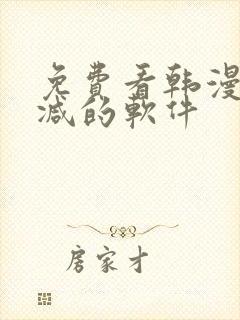 免費看韩漫
减的軟件
房家才